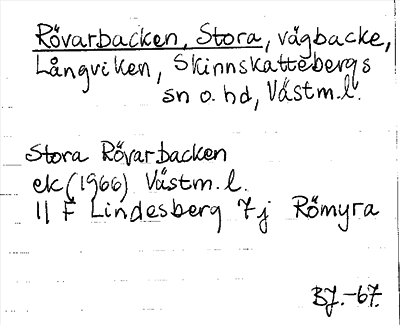 Rövarbacken, Stora, vägbacke,
Långviken, Skinnskattebergs
sn o. hd, Västm.l.
Stora Rövarbacken
ek (1966) Västm.l.
11 F Lindesberg 7j Römyra
BJ.-67.